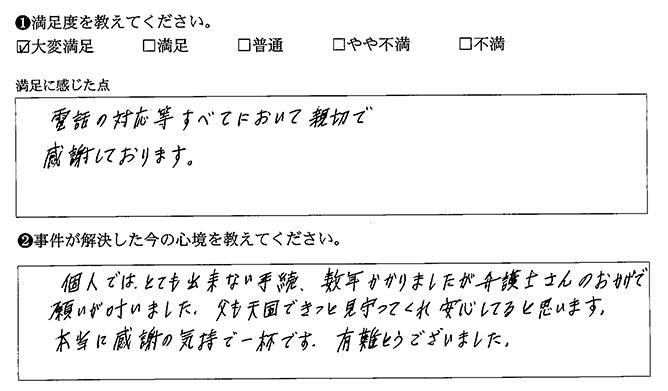 ❶満足度を教えてください。
☑大変満足 □満足 □普通 □やや不満 □不満
満足に感じた点
電話の対応等すべてにおいて親切で
感謝しております。
❷事件が解決した今の心境を教えてください。
個人では、とても出来ない手続、数年かかりましたが弁護士さんのおかげで
願いが叶いました。父も天国できっと見守ってくれ安心してると思います。
本当に感謝の気持で一杯です。有難とうございました。